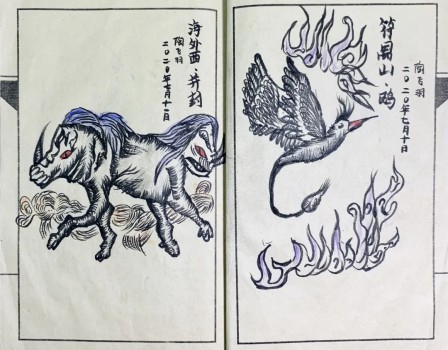 陶飞羽
二〇二〇年七月十日
符禺山·鴖
海外西·并封
陶飞羽
二〇二〇年七月十一日